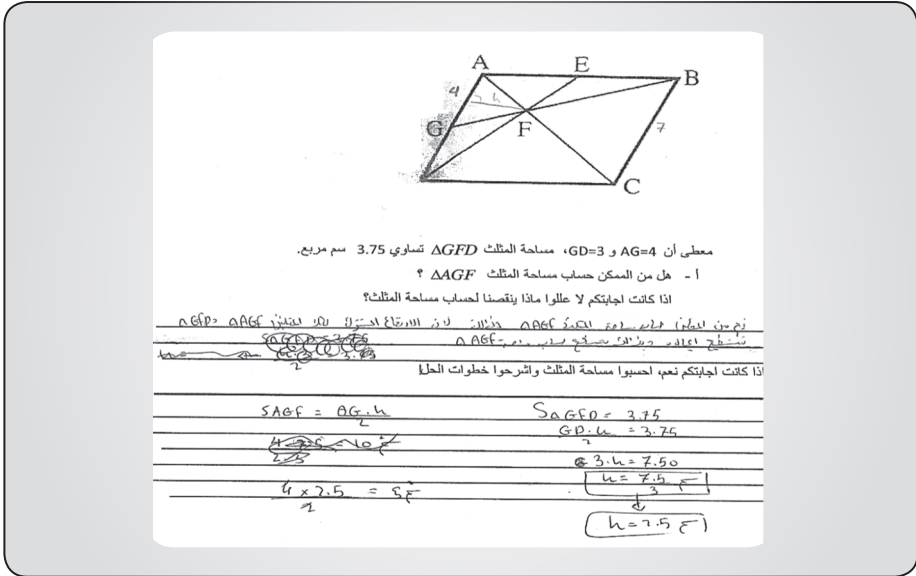 A E B
4 h
G F 7
C
معطى أن AG=4 و GD=3، مساحة المثلث ΔGFD تساوي 3.75 سم مربع.
أ - هل من الممكن حساب مساحة المثلث ΔAGF ؟
اذا كانت اجابتكم لا عللوا ماذا ينقصنا لحساب مساحة المثلث؟
نعم من الممكن حساب مساحة المثلث AGF وذلك لان الارتفاع المشترك لكلا المثلثين AGF GFD
نستطيع AGF
اذا كانت اجابتكم نعم، احسبوا مساحة المثلث واشرحوا خطوات الحل
SAGF = AG.h / 2
S GFD = 3.75
GD.h / 2 = 3.75
3.h = 7.50
h = 7.5 / 3
4 x 2.5 / 2 = 5
h = 2.5